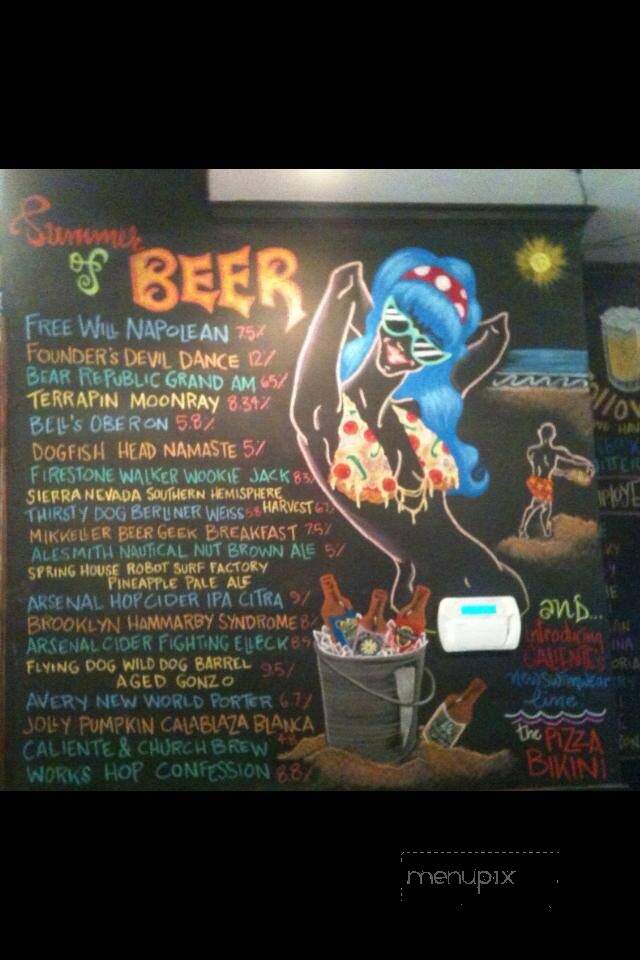 Summer
of BEER
FREE WILL NAPOLEAN 7.5%
FOUNDER'S DEVIL DANCE 12%
BEAR REPUBLIC GRAND AM 6.5%
TERRAPIN MOONRAY 8.34%
BELL'S OBERON 5.8%
DOGFISH HEAD NAMASTE 5%
FIRESTONE WALKER WOOKIE JACK 8.3%
SIERRA NEVADA SOUTHERN HEMISPHERE
HARVEST 6.7%
THIRSTY DOG BERLINER WEISS
MIKKELLER BEER GEEK BREAKFAST 7.5%
ALESMITH NAUTICAL NUT BROWN ALE 5%
SPRING HOUSE ROBOT SURF FACTORY
PINEAPPLE PALE ALE
ARSENAL HOP CIDER IPA CITRA 9%
BROOKLYN HAMMARBY SYNDROME 8%
ARSENAL CIDER FIGHTING ELLECK
FLYING DOG WILD DOG BARREL
AGED GONZO 9.5%
AVERY NEW WORLD PORTER 6.7%
JOLLY PUMPKIN CALABLAZA BLANKA
CALIENTE & CHURCH BREW
WORKS HOP CONFESSION 8.8%
AND...
introducing
CALIENTE'S
new swimwear
line
the PIZZA
BIKINI
menupix